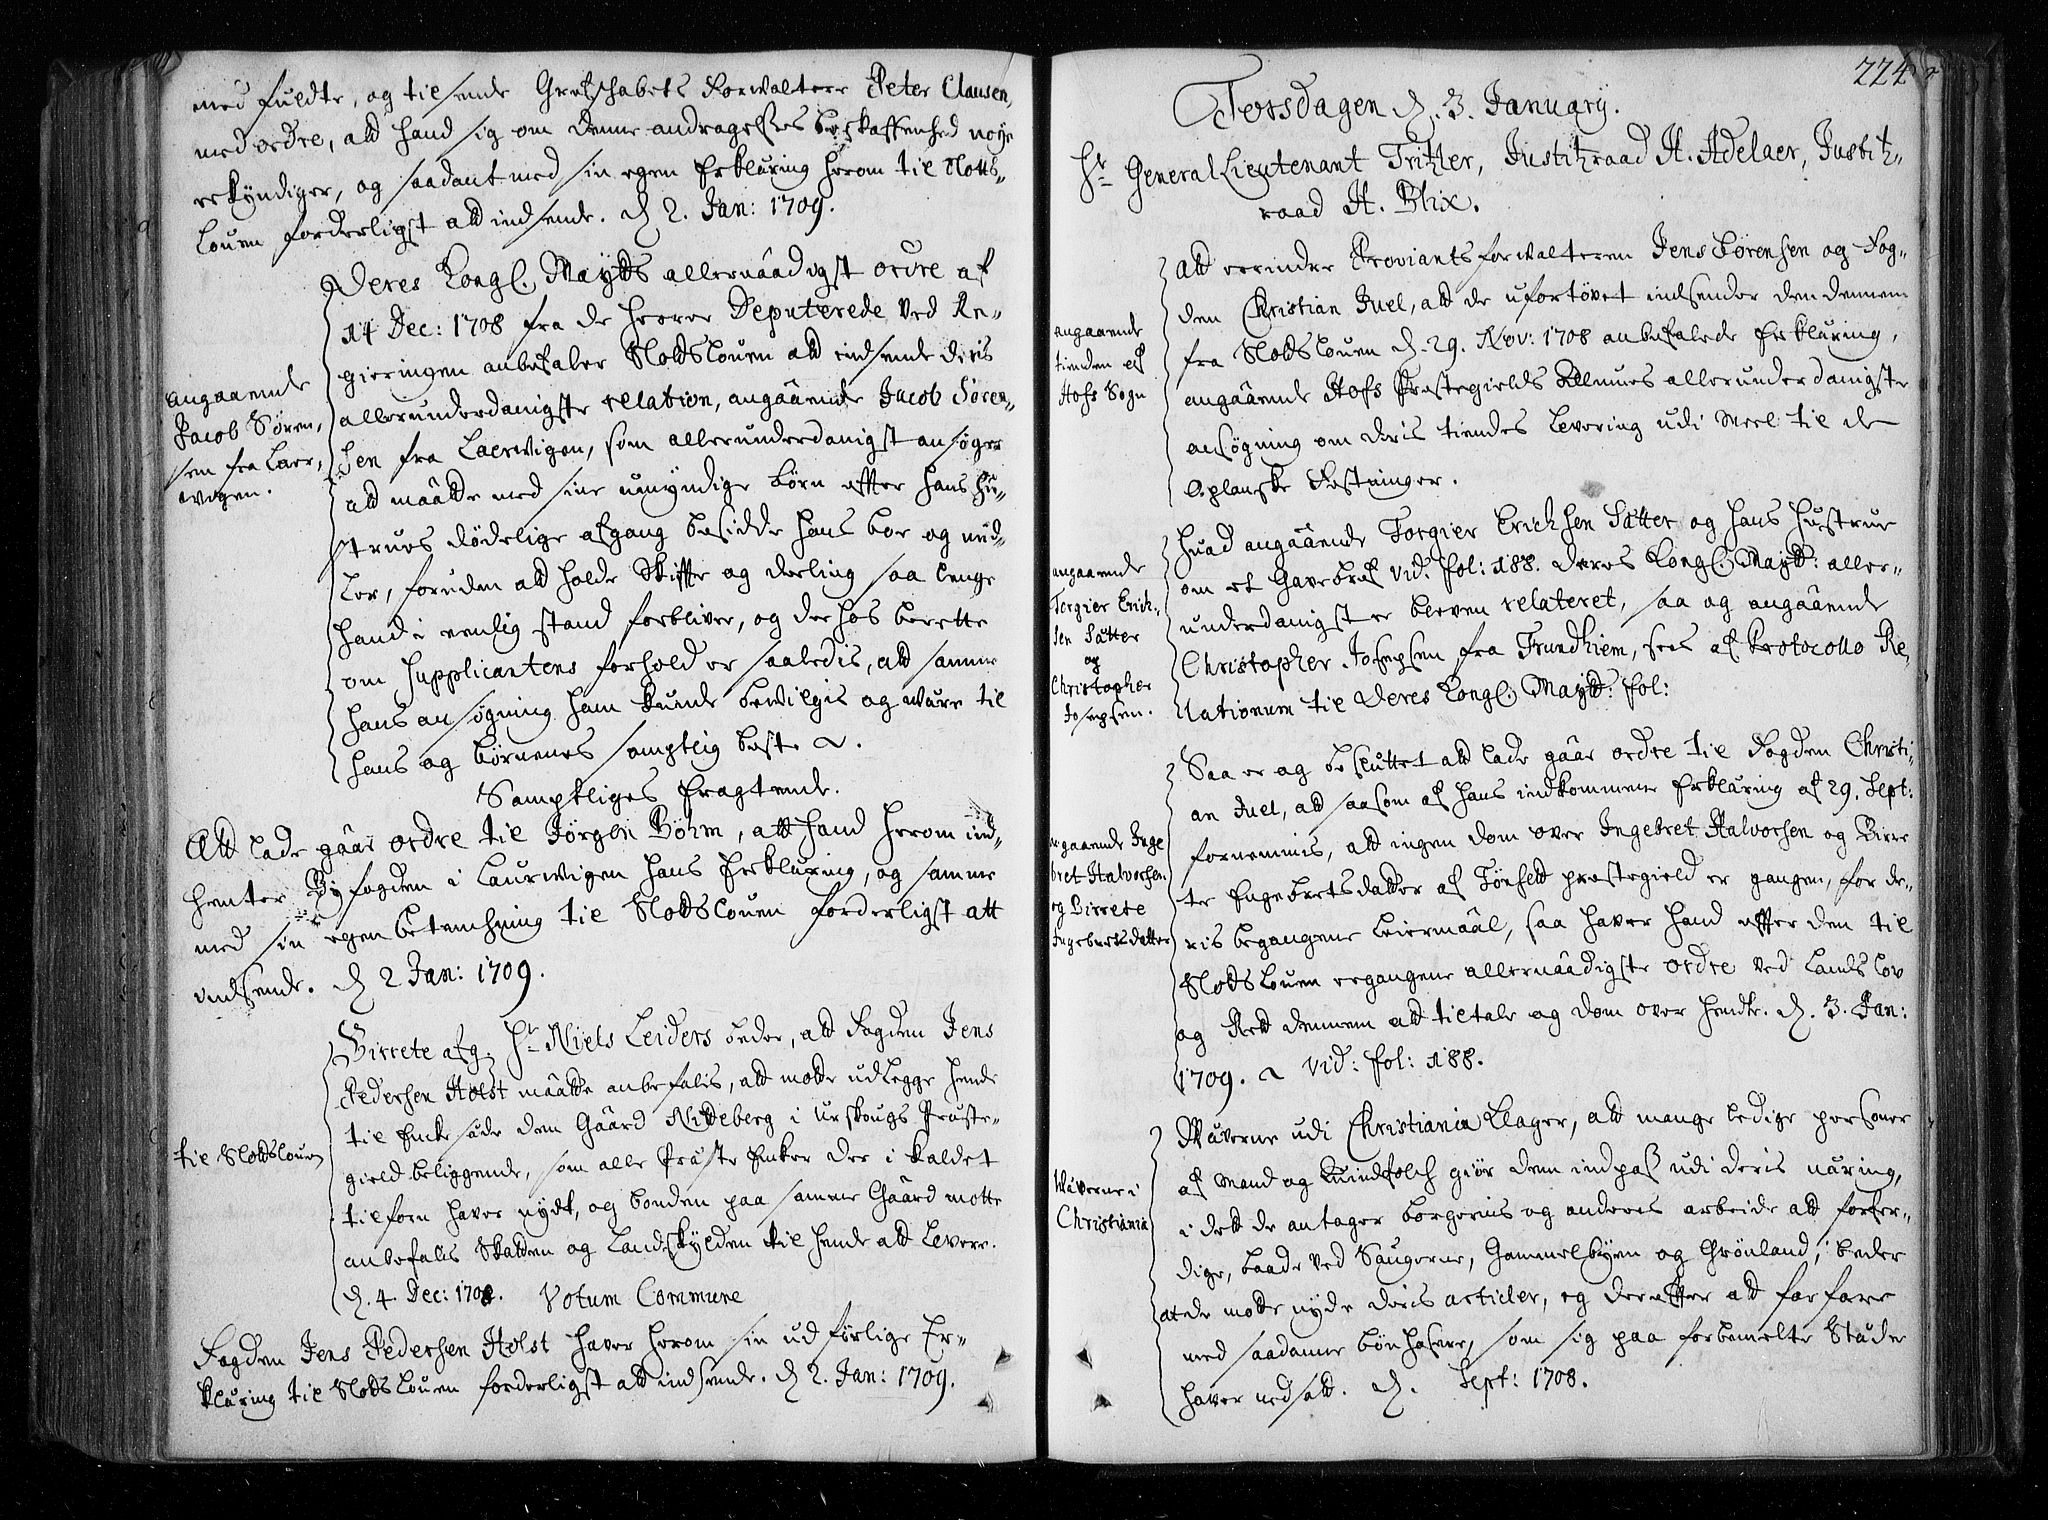 med fuldte, og tilsende Grefschabets Forwaltere Peter Clausen,
med ordre, ald hand sig om denne andragelses beskaffenhed nøye
erkyndiger, og saadant med sin egen Erklæring herom til Slots-
Louen forderligst ald indsende. D. 2. Jan: 1709.
Deres Kongl. Maytts allernaadigst ordre af
14 Dec: 1708 fra de herrer Deputerede ved Re-
gieringen anbefaler Slodslouen ald indsende deris
allerunderdanigste relation, angaaende Jacob Søren-
sen fra Laerwigen, som allerunderdanigst ansøger
ald maatte med sine umyndige børn effter hans Hu-
strues dødelige afgang besidde hans boe og mid-
ler, foruden ald holde Skiffte og deeling saa lenge
hand i eenlig stand forbliver, og derhos berette
om Supplicantens forhold er saaledis, ald samme
hans ansøgning ham kunde bevilgis og være til
hans og børnenes samptlig beste ~.
Samptliges Eragtende.
angaaende
Jacob Søren-
sen fra Laer-
wigen.
Ald lade gaae ordre til Jørgen Böhm, att hand herom ind-
henter Byfogden i Laurwigen hans Erklæring, og samme
med sin egen betenchning til Slodslouen forderligst att
indsende. D 2 Jan: 1709.
Birrete afg. Hr Niels Leiders beder, ald Fogden Jens
Pedersen Holst maatte anbefalis, ald motte udlegge hende
til Enkesæde den Gaard Nideberg i Urskougs Præste-
gield beliggende, som alle Præste Enker der i kaldet
tilforn haver nydt, og bonden paa samme Gaard motte
anbefalis Skatten og Landskylden til hende ald Levere.
D. 4. Dec: 1708. Votum Commune
til Slodslouen
Fogden Jens Pedersen Holst haver herom sin udførlige Er-
klæring til Slodslouen forderligst ald indsende. D 2. Jan: 1709.
224
Torsdagen D. 3. January.
Hr General Lieutenant Tritzler, Justitzraad H. Adelaer, Justitz-
raad H. Blix.
Ald erindre Proviantsforwalteren Jens Sørensen og Fog-
den Christian Juel, ald de ufortøvet indsender den dennem
fra Slodslouen D. 29. Nov: 1708 anbefalede Erklæring,
angaaende Hofs Prestegields Allmues allerunderdanigste
ansøgning om deris tiendes Levering udi Meel til de
Oplanske Festninger.
angaaende
tienden af
Hofs Sogn
Huad angaaende Torgier Erichsen Sätter og hans Hustrue
om et Gavebref vid: fol: 188. Deres Kongl: Maytt: aller-
underdanigst er bleven relateret, saa og angaaende
Christopher Josepsen fra Trundhiem, sees af Protocollo Re-
lationum til Deres Kongl: Maytt: fol:
angaaende
Torgier Erich-
sen Sätter
og
Christopher
Josepsen.
Saa er og besluttet ald lade gaae ordre til Fogden Christi-
an Juel, ald saasom af hans indkommene Erklæring af 29. Sept:
fornemmis, ald ingen dom over Ingebret Halvorsen og Birre-
te Engebretsdatter af Tønset præstegield er gangen, for de-
ris begangene Leiermaal, saa haver hand effter den til
Slodslouen ergangene allernaadigste ordre ved Lands Lov
og Rett dennem ald tiltale og dom over hendte. D. 3. Jan:
1709. ~ vid: fol: 188.
angaaende Inge
bret Halvorsen
og Birrete
Ingebretsdatter
Wäverne udi Christiania klager, ald mange ledige personer
af Mand og Quindfolch giør dem indpas udi deris næring,
i dett de antager borgernis og anderes arbeide ald forfer-
dige, baade ved Saugerne, Gammelbyen og Grönland, beder
at de motte nyde deris articler, og dereffter ald forfare
med saadanne bönhasere, som sig paa forbemelte Stæde
haver nedsatt. D. Sept: 1708.
Wäverne i
Christiania